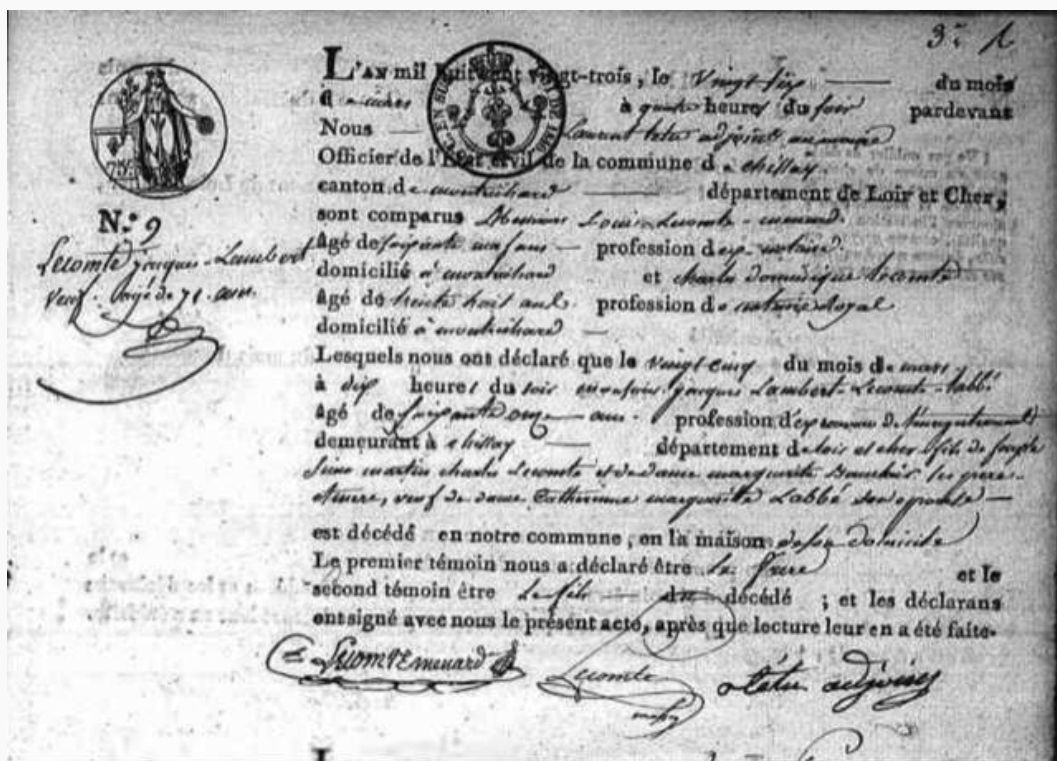 3.e
L'AN mil huit cent vingt-trois, le vingt six du mois
de mars à quatre heures du soir pardevant
Nous Laurent tetu adjoint au maire
Officier de l'Etat civil de la commune de chissay
canton de montrichard département de Loir et Cher,
sont comparus Louis Lecomte-menard
âgé de soixante ans profession d'ex-notaire
domicilié à montrichard et charles dominique Lecomte
âgé de trente huit ans profession de notaire Royal
domicilié à montrichard
N.º 9
Lecomte jacques-Lambert
veuf. âgé de 71 ans.
Lesquels nous ont déclaré que le vingt cinq du mois de mars
à dix heures du soir jacques Lambert-Lecomte-Labbé
âgé de soixante onze ans. profession d'ex
demeurant à chissay département de loir et cher fils de
martin charles Lecomte et de dame marguerite ses père
et mere, veuf de dame Catherinne marguerite Labbé son epouse
est décédé en notre commune, en la maison de son domicile
Le premier témoin nous a déclaré être le frere et le
second témoin être le fils du décédé ; et les déclarans
ont signé avec nous le présent acte, après que lecture leur en a été faite.
Lecomte menard Lecomte tétu adjoint